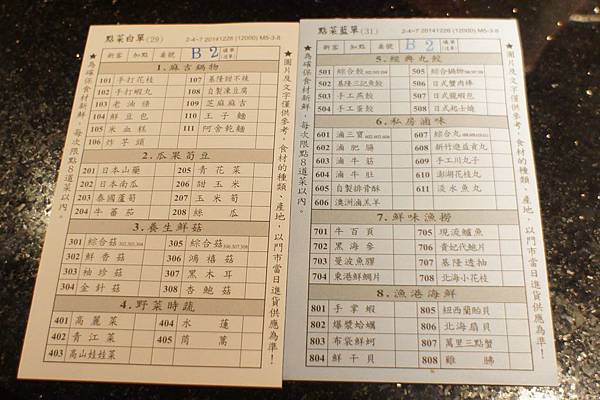 點菜白單(29) 2-4-7 20141226 (12000) M5-3-8
新客 加點 桌號 B 2
★為確保食材新鮮，每次限點8道菜以內。
1.麻吉鍋物
101 手打花枝 107 基隆甜不辣
102 手打蝦丸 108 自製凍豆腐
103 老油條 109 芝麻麻吉
104 鮮豆包 110 王子麵
105 米血糕 111 阿舍乾麵
106 炸芋頭
2.瓜果筍豆
201 日本山藥 205 青花菜
202 日本南瓜 206 甜玉米
203 泰國蘆筍 207 玉米筍
204 牛蕃茄 208 絲瓜
3.養生鮮菇
301 綜合菇302,303,304 305 綜合菇306,307,308
302 鮮香菇 306 鴻禧菇
303 袖珍菇 307 黑木耳
304 金針菇 308 杏鮑菇
4.野菜時蔬
401 高麗菜 404 水蓮
402 青江菜 405 茼蒿
403 高山娃娃菜
★圖片及文字僅供參考，食材的種類、產地，以門市當日進貨供應為準！
點菜藍單(31) 2-4-7 20141226 (12000) M5-3-8
新客 加點 桌號 B 2
★為確保食材新鮮，每次限點8道菜以內。
5.經典丸餃
501 綜合餃502,503,504 505 綜合鍋物506,507,508
502 基隆三記魚餃 506 日式蟹肉棒
503 手工燕餃 507 日式龍蝦包
504 手工蛋餃 508 日式起士燒
6.私房滷味
601 滷三寶602,603,604 607 綜合丸608,609,610,611
602 滷肥腸 608 新竹遊益貢丸
603 滷牛筋 609 手工川丸子
604 滷牛肚 610 澎湖花枝丸
605 自製排骨酥 611 淡水魚丸
606 澳洲滷羔羊
7.鮮味漁撈
701 牛百頁 705 現流鱸魚
702 黑海參 706 貴妃代鮑片
703 曼波魚膠 707 基隆透抽
704 東港鮮鯛片 708 北海小花枝
8.漁港海鮮
801 手掌蝦 805 紐西蘭貽貝
802 爆漿蛤蠣 806 北海扇貝
803 布袋鮮蚵 807 萬里三點蟹
804 鮮干貝 808 雞腨
★圖片及文字僅供參考，食材的種類、產地，以門市當日進貨供應為準！